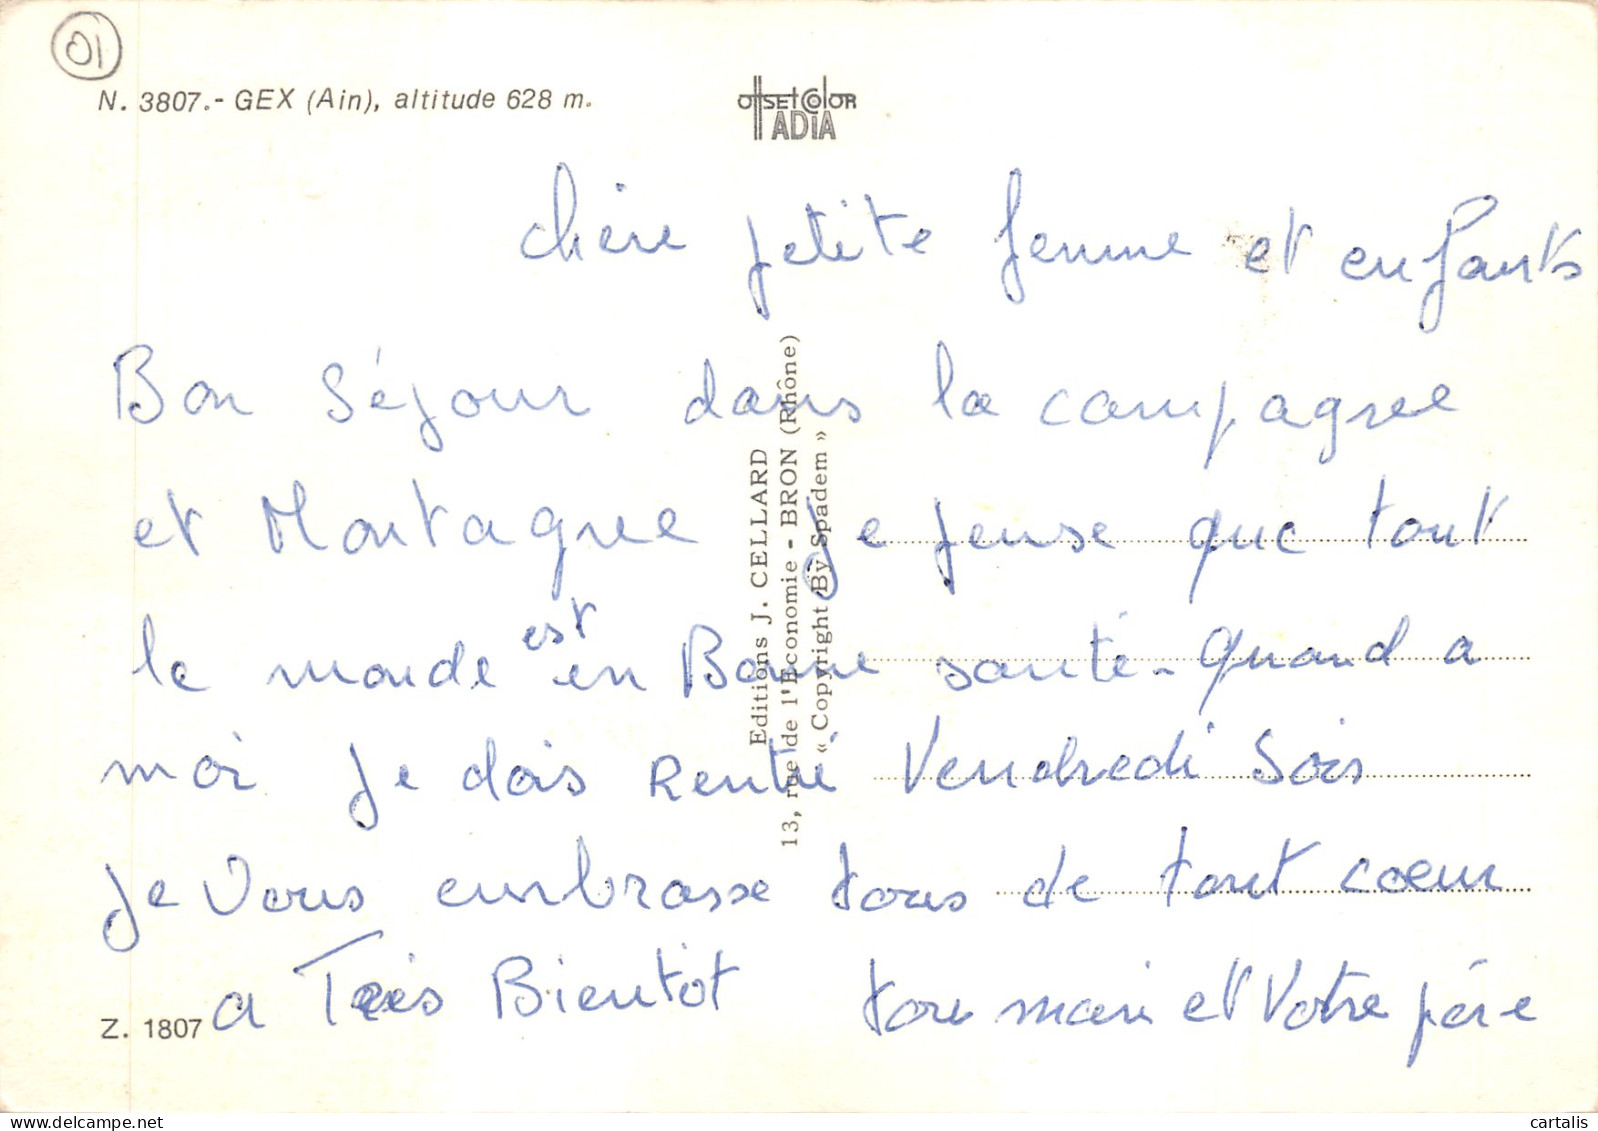 01
N. 3807.- GEX (Ain), altitude 628 m.
OffsetColor
ADIA
chère petite femme et enfants
Bon Séjour dans la campagne
et Montagne Je pense que tout
le monde est en Bonne santé - Quand a
moi Je dois Rentré Vendredi Soir
Je Vous embrasse tous de tout coeur
a Très Bientot ton mari et Votre père
Editions J. CELLARD
13, rue de l'Economie - BRON (Rhône)
« Copyright By Spadem »
Z. 1807
cartalis